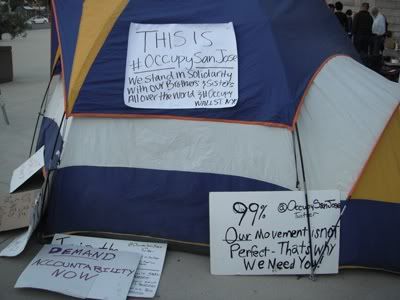 THIS IS
#OccupySanJose
We stand in Solidarity
with our Brothers & Sisters
All over the World & #Occupy
WALL ST. NY
99% @OccupySanJose
Twitter
Our Movement is not
Perfect - That's why
We Need You!
DEMAND
ACCOUNTABILITY
NOW